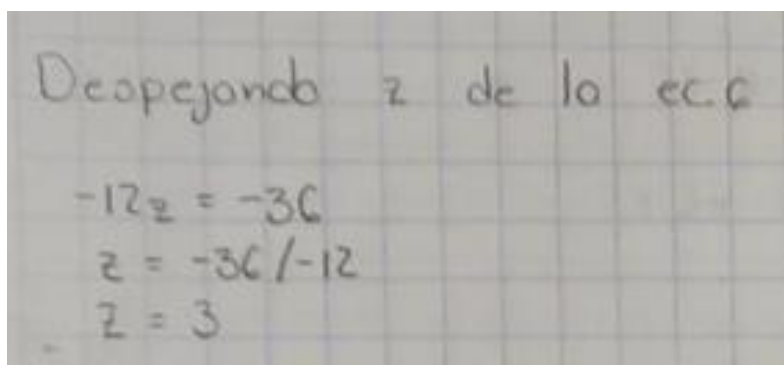 Despejando z de la ec. 6
-12z = -36
z = -36/-12
z = 3